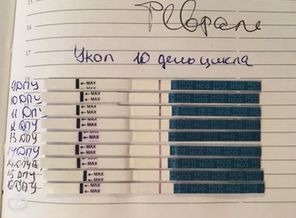 Февраль
Укол 10 день цикла
9 ДПУ
10 ДПУ
11 ДПУ
12 ДПУ
13 ДПУ
14 ДПУ
15 ДПУ
MAX
MAX
MAX
MAX
MAX
MAX
MAX
MAX
MAX